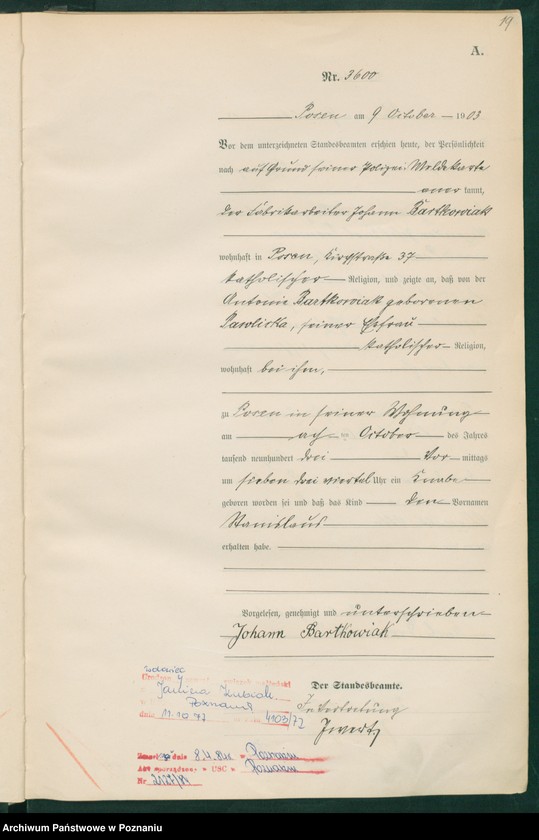 19
A.
Nr. 3600
Posen am 9 October 1903
Vor dem unterzeichneten Standesbeamten erschien heute, der Persönlichkeit
nach auf Grund seiner Polizei Meldekarte
anerkannt,
der Fabrikarbeiter Johann Bartkowiak
wohnhaft in Posen, Kirchstraße 37
katholischer Religion, und zeigte an, daß von der
Antonie Bartkowiak geborenen
Pawlicka, seiner Ehefrau
katholischer Religion,
wohnhaft bei ihm,
zu Posen in seiner Wohnung
am acht October des Jahres
tausend neunhundert drei Vor mittags
um sieben drei viertel Uhr ein Knabe
geboren worden sei und daß das Kind den Vornamen
Stanislaus
erhalten habe.
Vorgelesen, genehmigt und unterschrieben
Johann Bartkowiak
Der Standesbeamte.
In Vertretung
Janina
Poznaniu
dnia 11.10.72 4103/72
dnia 8.11.84 w Poznaniu
Akt USC w Poznaniu
Nr 2127/84
Archiwum Państwowe w Poznaniu